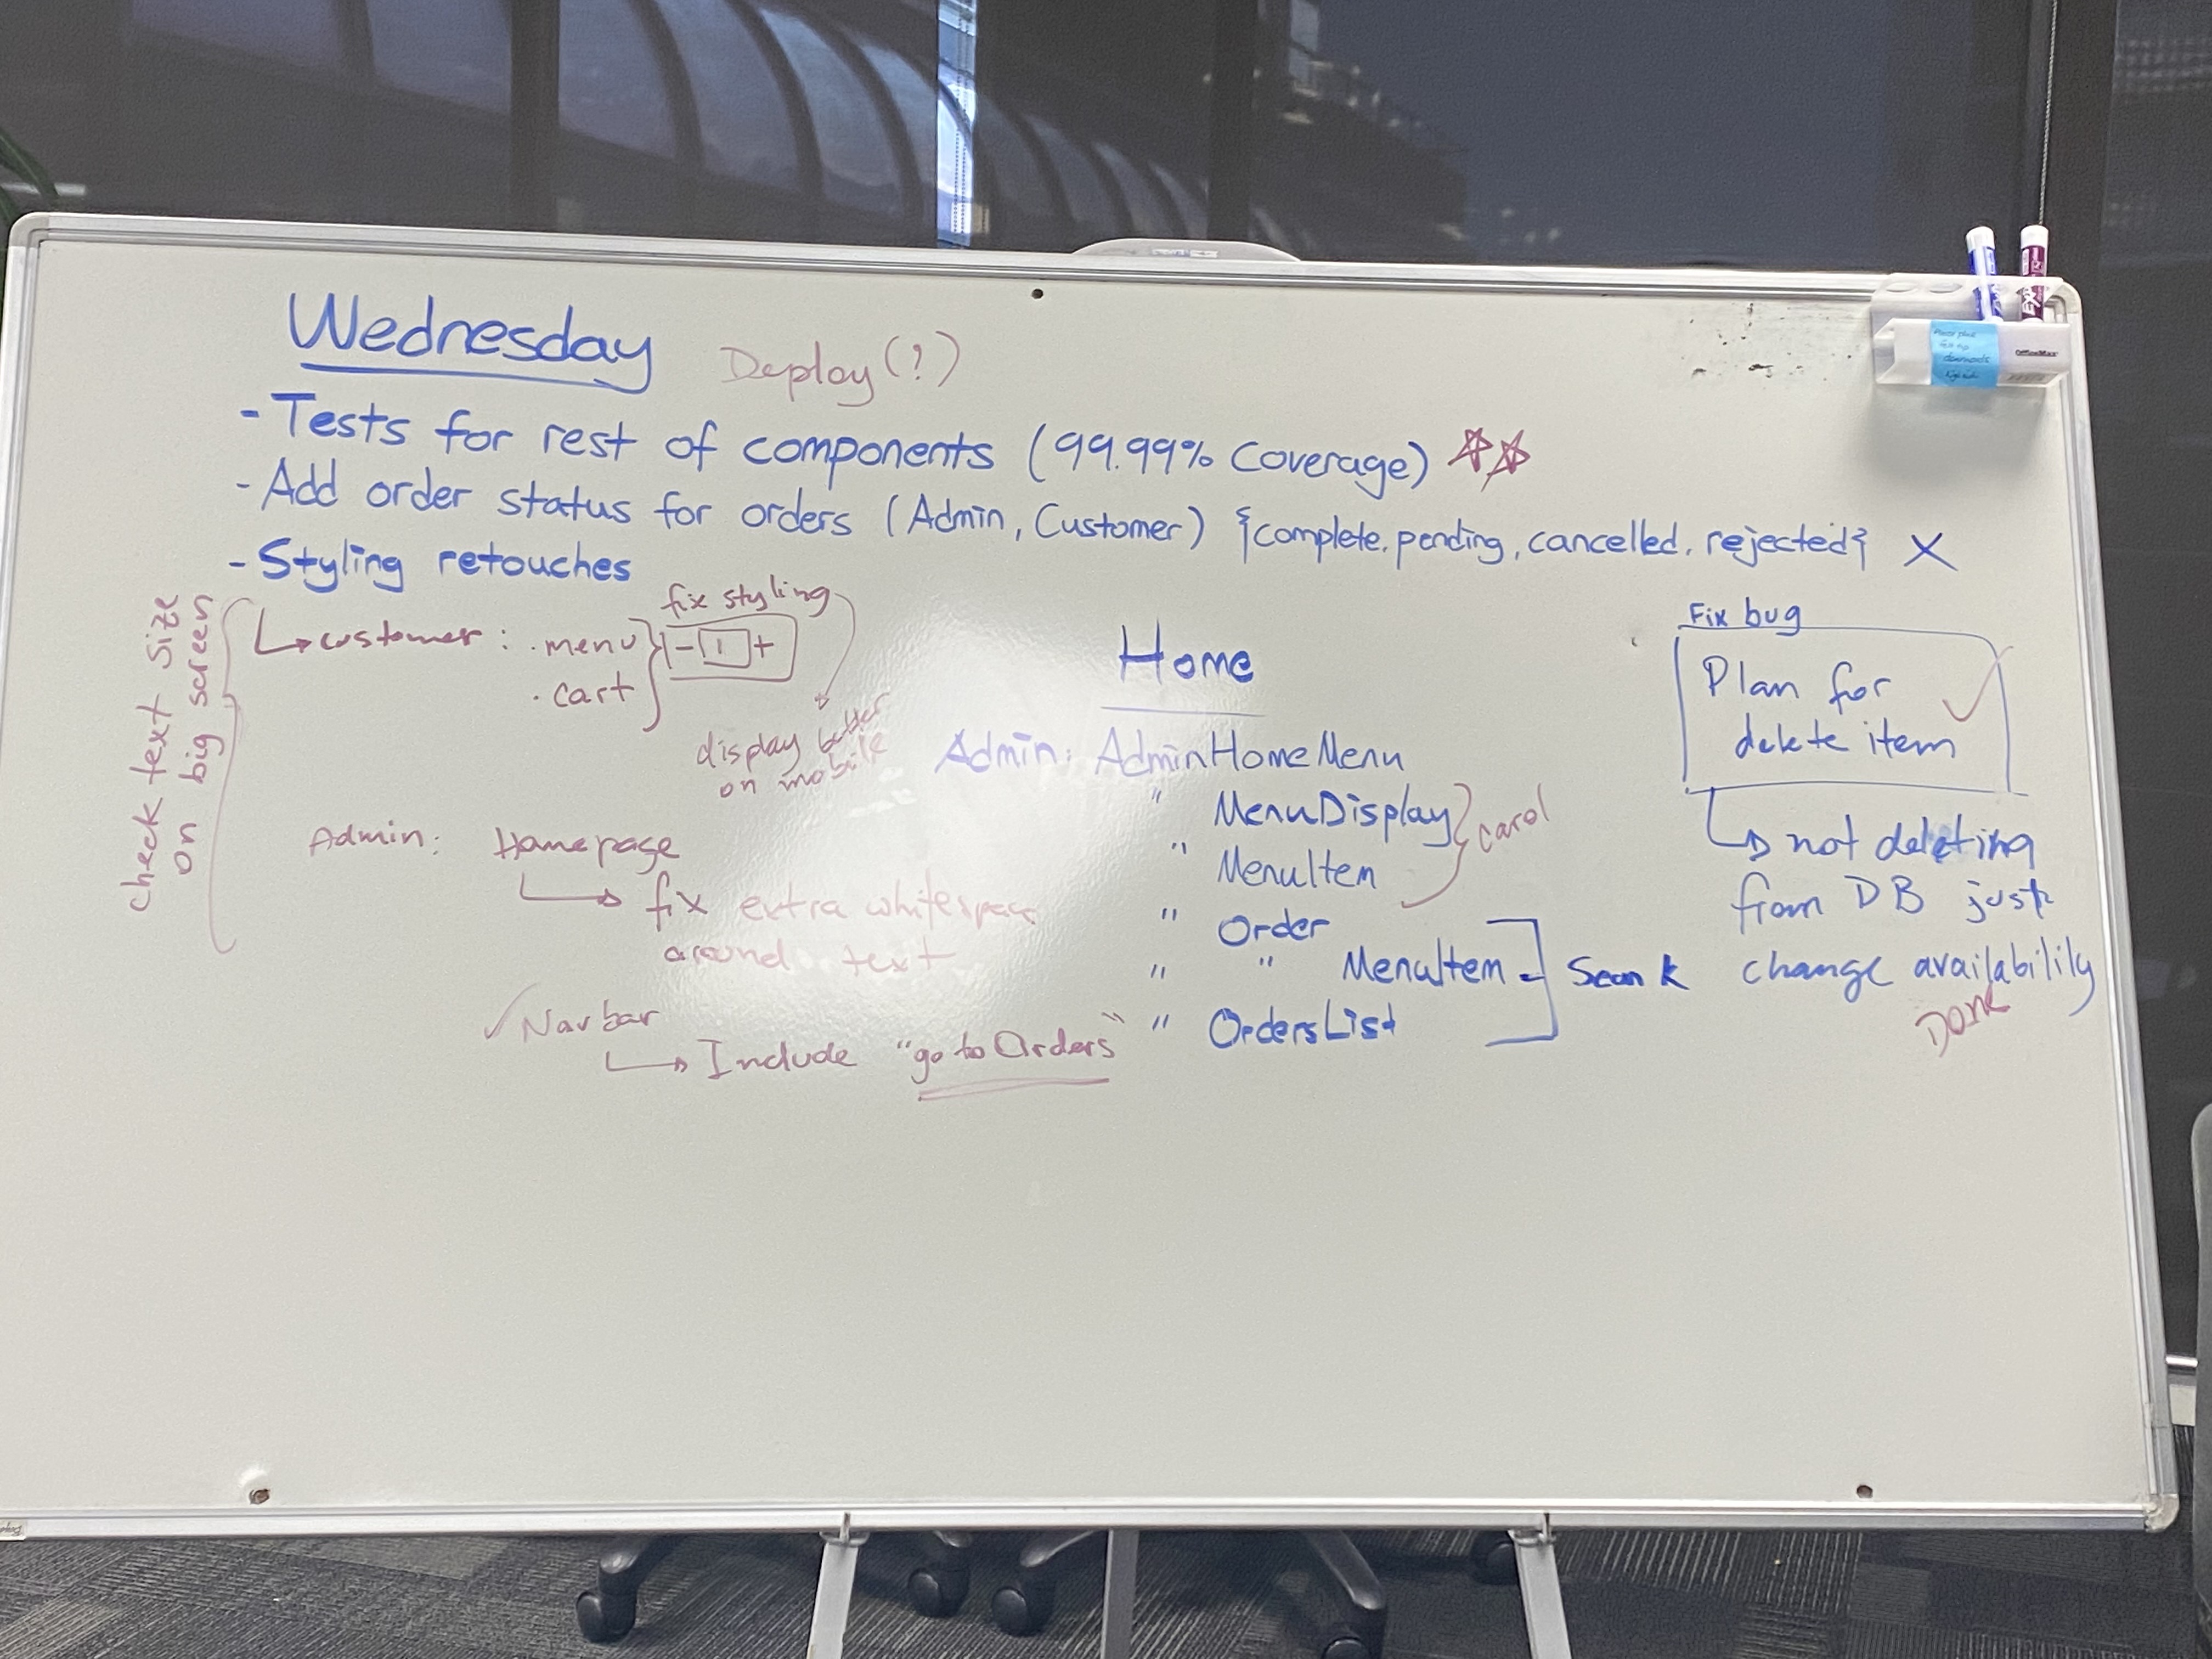 Wednesday
Deploy (?)
- Tests for rest of components (99.99% Coverage)
- Add order status for orders (Admin, Customer) {complete, pending, cancelled, rejected} X
- Styling retouches
check text size
on big screen
customer : . menu
. cart
fix styling
- 1 +
display better
on mobile
Admin: Homepage
fix extra whitespace
around text
✓ Navbar
Include "go to Orders"
Home
Admin: AdminHomeMenu
" MenuDisplay
" MenuItem
carol
" Order
" " MenuItem
" OrdersList
Sean K
Fix bug
Plan for
delete item ✓
not deleting
from DB just
change availability
Done
OfficeMax